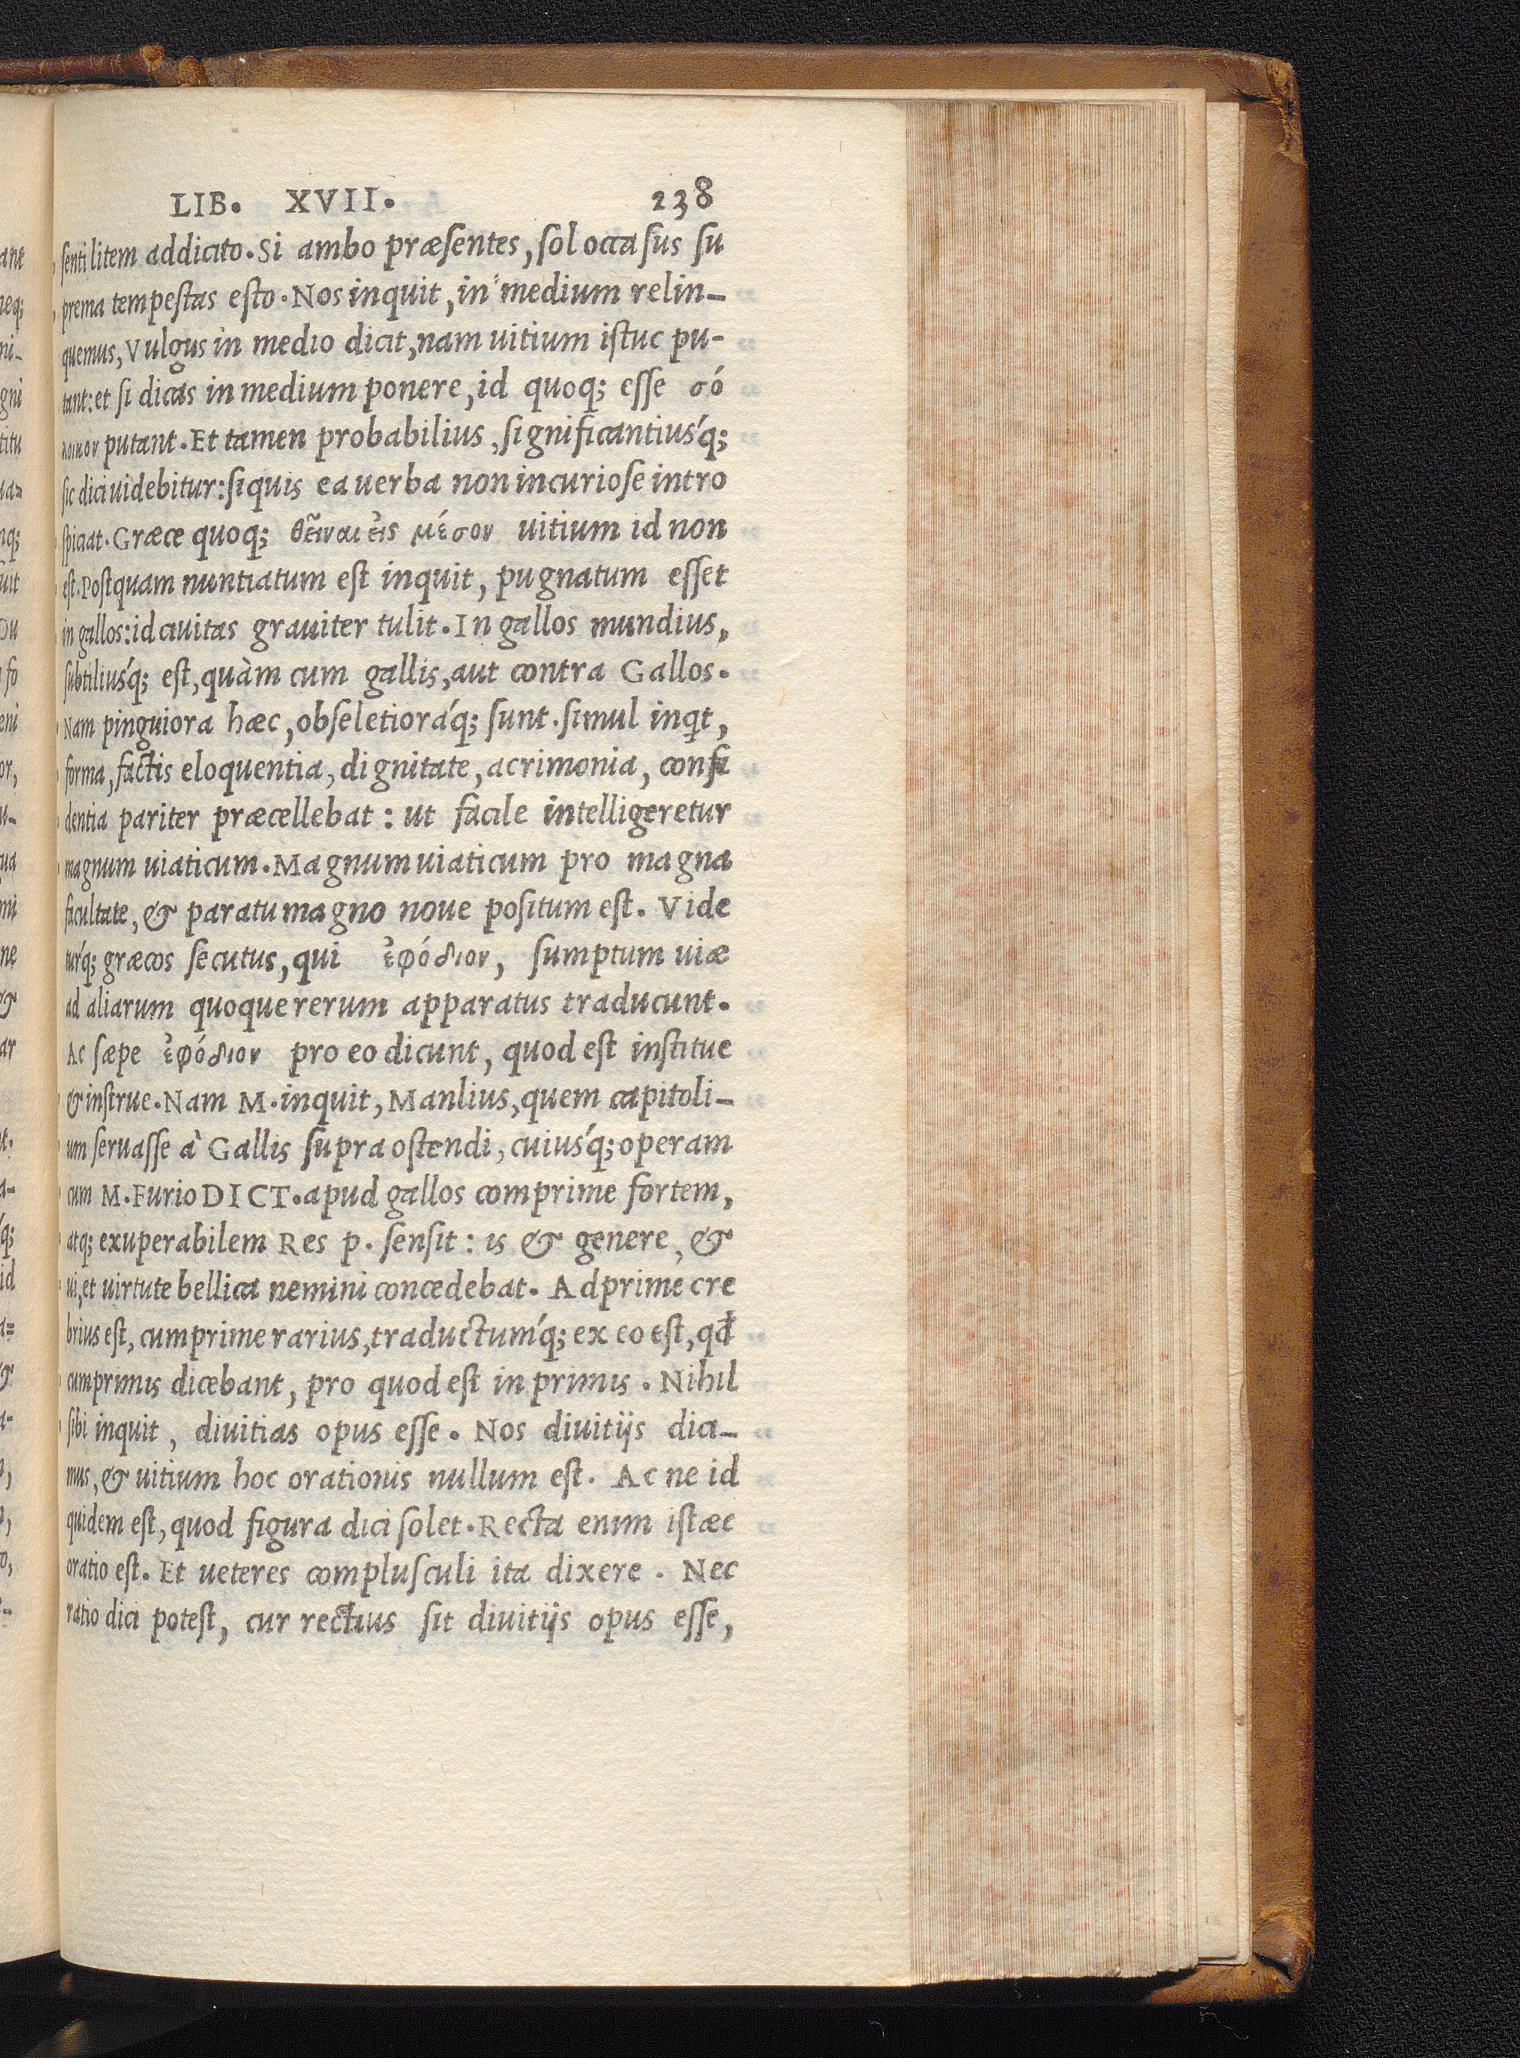 LIB. XVII. 238
senti litem addicito. Si ambo præsentes, sol occasus su
prema tempestas esto. Nos inquit, in medium relin-
quemus, Vulgus in medio dicit, nam uitium istuc pu-
tant: et si dicas in medium ponere, id quoq; esse σό
λοικον putant. Et tamen probabilius, significantiusq́;
sic dici uidebitur: siquis ea uerba non incuriose intro
spiciat. Græce quoq; θεῖναι εἰς μέσον uitium id non
est. Postquam nuntiatum est inquit, pugnatum esset
in gallos: id ciuitas grauiter tulit. In gallos mundius,
subtiliusq́; est, quàm cum gallis, aut contra Gallos.
Nam pinguiora hæc, obseletioráq; sunt. simul inqt,
forma, factis eloquentia, dignitate, acrimonia, confi
dentia pariter præcellebat: ut facile intelligeretur
magnum uiaticum. Magnum uiaticum pro magna
facultate, & paratu magno noue positum est. Vide
turq́; græcos secutus, qui ἐφόδιον, sumptum uiæ
ad aliarum quoque rerum apparatus traducunt.
Ac sæpe ἐφόδιον pro eo dicunt, quod est institue
& instrue. Nam M. inquit, Manlius, quem capitoli-
um seruasse à Gallis supra ostendi, cuiusq́; operam
cum M. Furio DICT. apud gallos comprime fortem,
atq; exuperabilem Res p. sensit: is & genere, &
ui, et uirtute bellica nemini concedebat. Adprime cre
brius est, cumprime rarius, traductumq́; ex eo est, qđ
cumprimis dicebant, pro quod est in primis. Nihil
sibi inquit, diuitias opus esse. Nos diuitijs dici-
mus, & uitium hoc orationis nullum est. Ac ne id
quidem est, quod figura dici solet. Recta enim istæc
oratio est. Et ueteres complusculi ita dixere. Nec
ratio dici potest, cur rectius sit diuitijs opus esse,